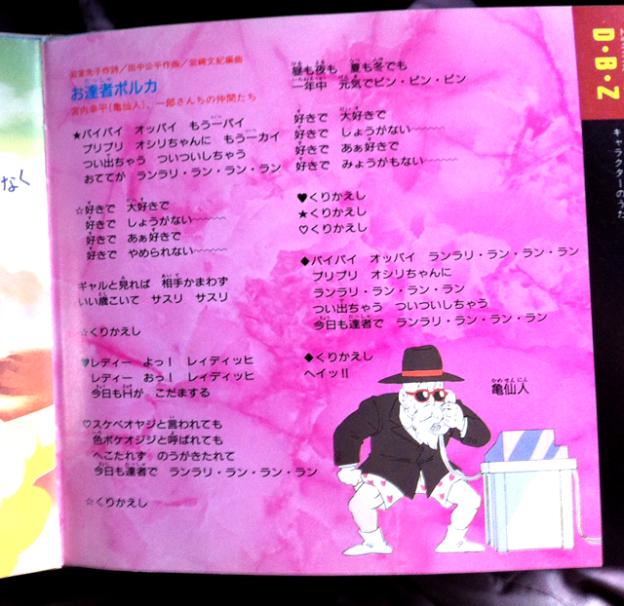 岩室先子作詩/田中公平作曲/岩崎文紀編曲
お達者ポルカ
宮内幸平(亀仙人)、一郎さんちの仲間たち
★パイパイ オッパイ もう一パイ
プリプリ オシリちゃんに もう一カイ
つい出ちゃう ついついしちゃう
おててが ランラリ・ラン・ラン・ラン
☆好きで 大好きで
好きで しょうがない~~~~
好きで あぁ好きで
好きで やめられない~~~~
ギャルと見れば 相手かまわず
いい歳こいて サスリ サスリ
☆くりかえし
♥レディー よっ! レィディッヒ
レディー おっ! レィディッヒ
今日もHが こだまする
♡スケベオヤジと言われても
色ボケオジジと呼ばれても
へこたれず のうがきたれて
今日も達者で ランラリ・ラン・ラン・ラン
☆くりかえし
昼も夜も 夏も冬でも
一年中 元気でピン・ピン・ピン
好きで 大好きで
好きで しょうがない~~~~
好きで あぁ好きで
好きで みょうがもない~~~~
♥くりかえし
★くりかえし
♡くりかえし
◆パイパイ オッパイ ランラリ・ラン・ラン
プリプリ オシリちゃんに
ランラリ・ラン・ラン・ラン
つい出ちゃう ついついしちゃう
今日も達者で ランラリ・ラン・ラン・ラン
◆くりかえし
ヘイッ!!
亀仙人
D・B・Z
キャラクターのうた
なく